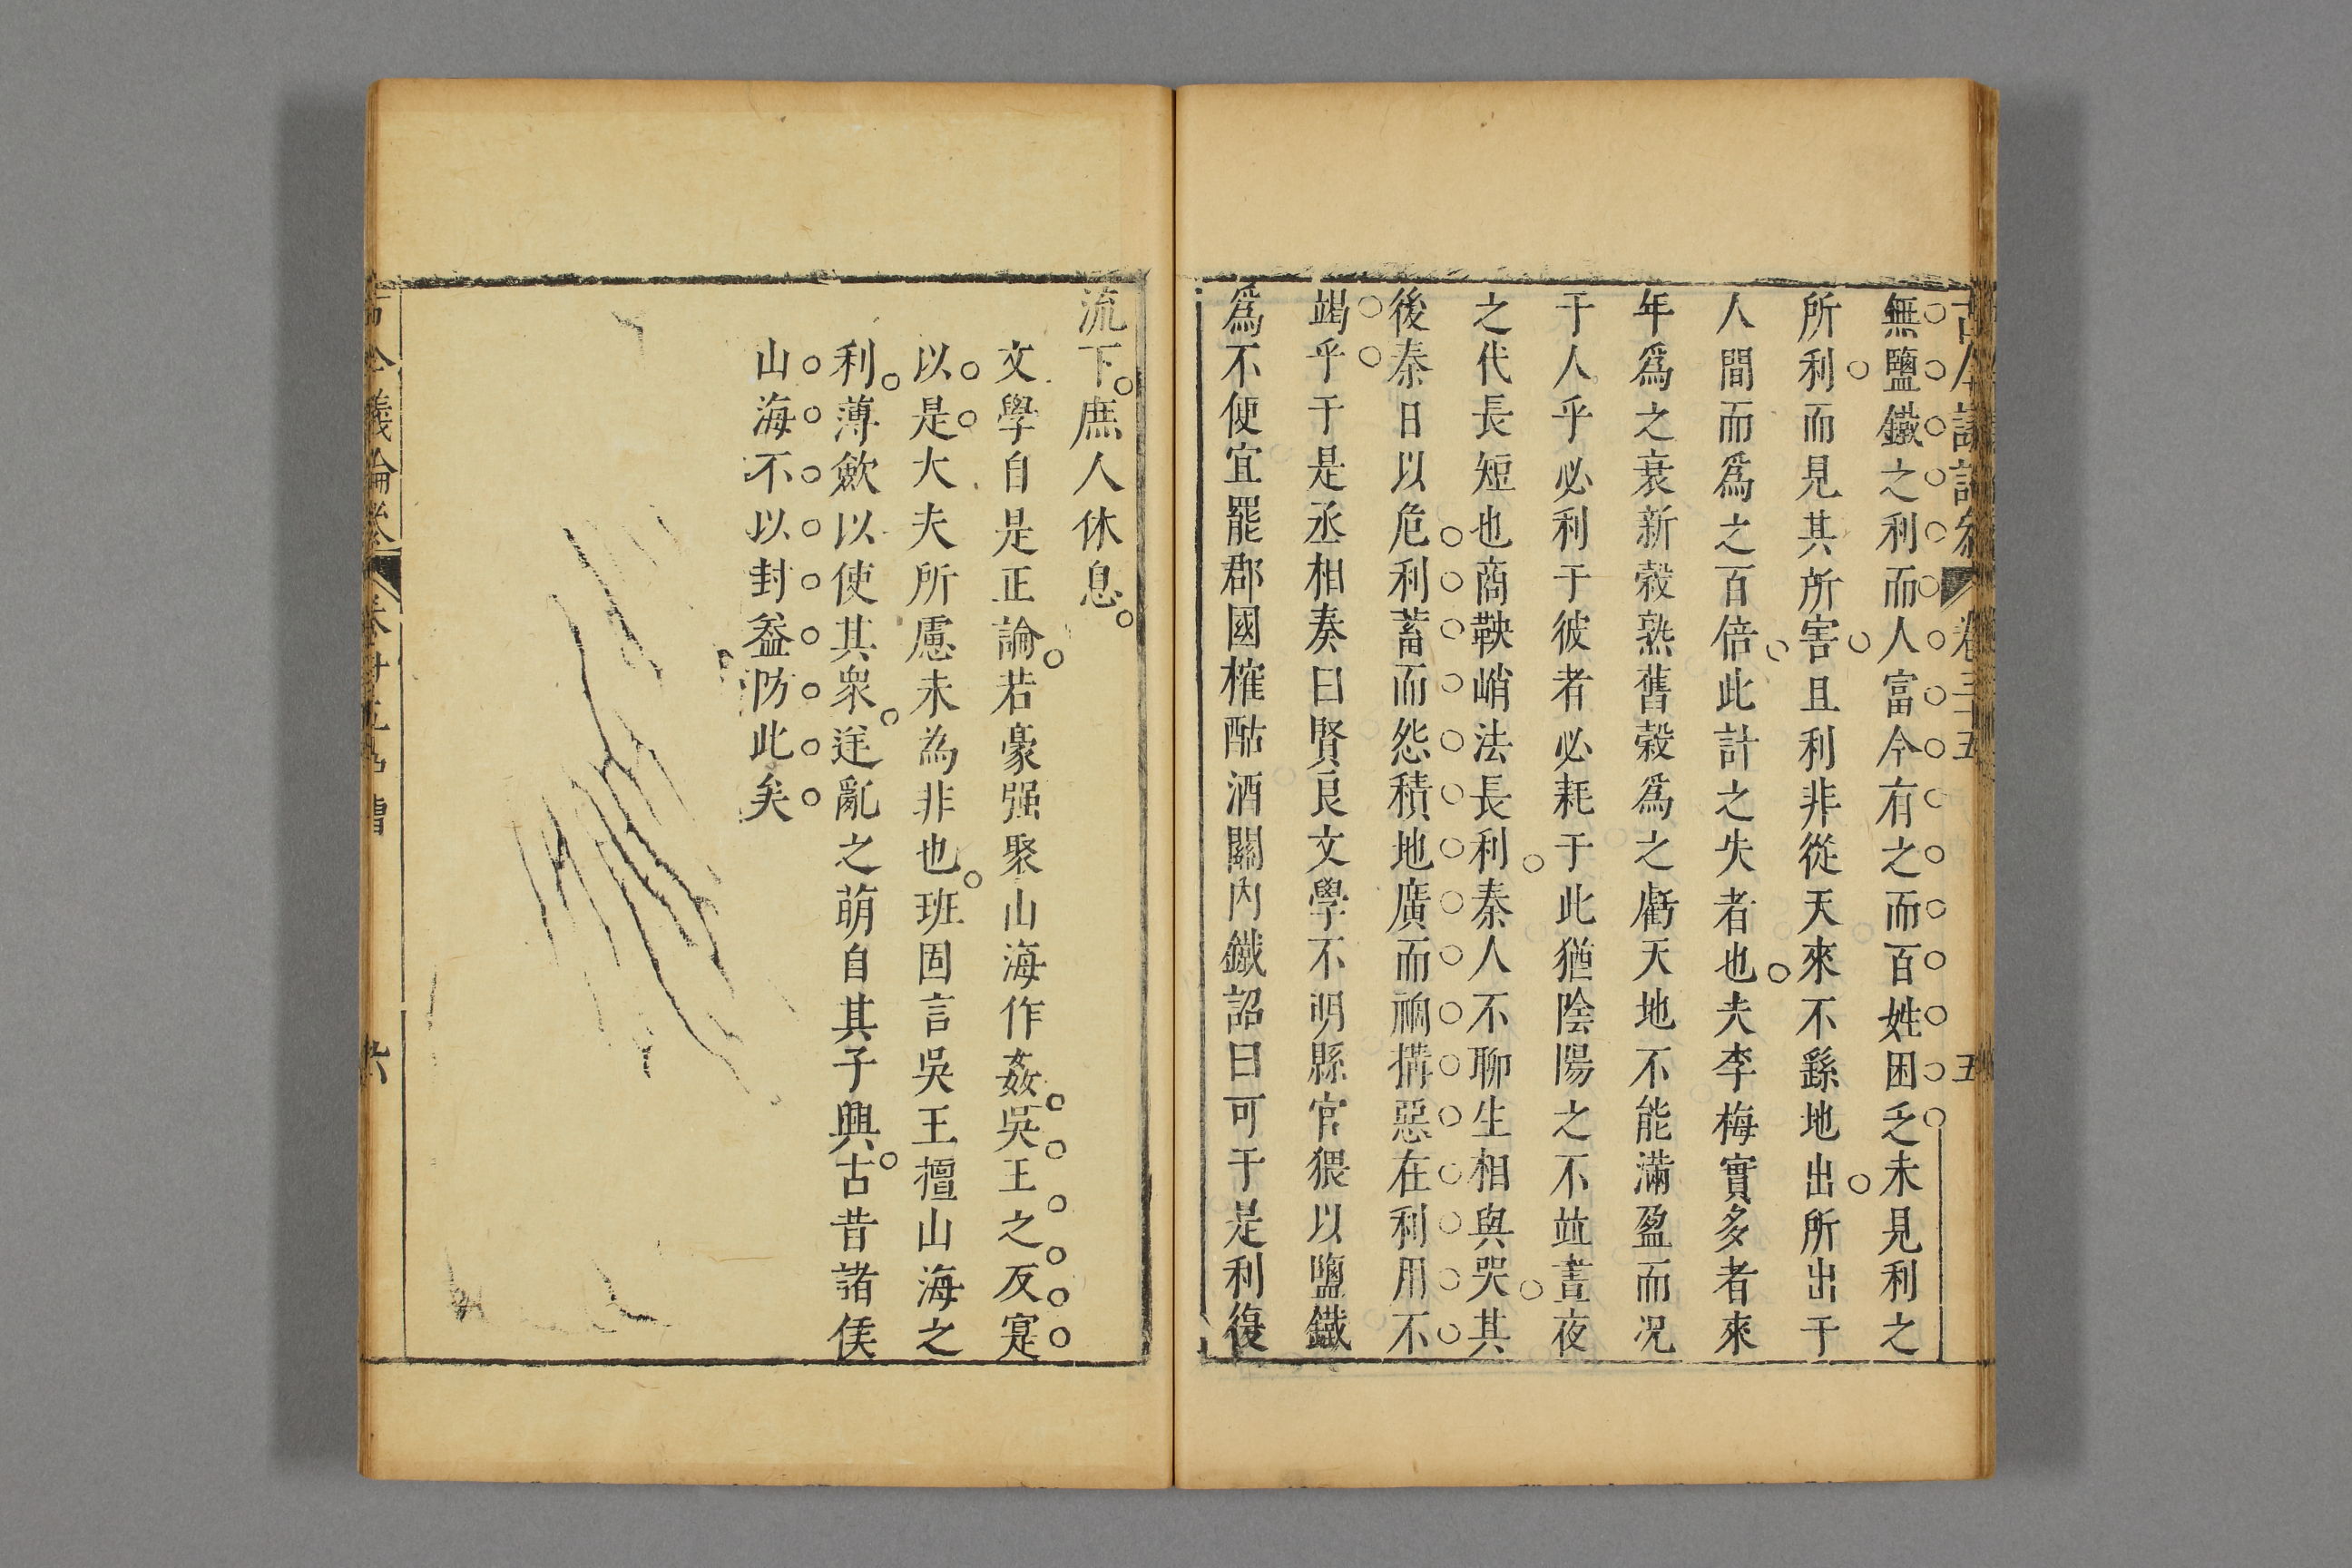 無鹽鐵之利而人富今有之而百姓困乏未見利之
所利而見其所害且利非從天來不繇地出所出于
人間而爲之百倍此計之失者也夫李梅實多者來
年爲之衰新穀熟舊穀爲之虧天地不能滿盈而况
于人乎必利于彼者必耗于此猶陰陽之不竝晝夜
之代長短也商鞅峭法長利秦人不聊生相與哭其
後秦日以危利蓄而怨積地廣而禍搆惡在利用不
竭乎于是丞相奏曰賢良文學不明縣官猥以鹽鐵
爲不便宜罷郡國榷酤酒關內鐵詔曰可于是利復
流下庶人休息
文學自是正論若豪强聚山海作姦吳王之反寔
以是大夫所慮未為非也班固言吳王擅山海之
利薄歛以使其衆逆亂之萌自其子興古昔諸侯
山海不以封葢防此矣